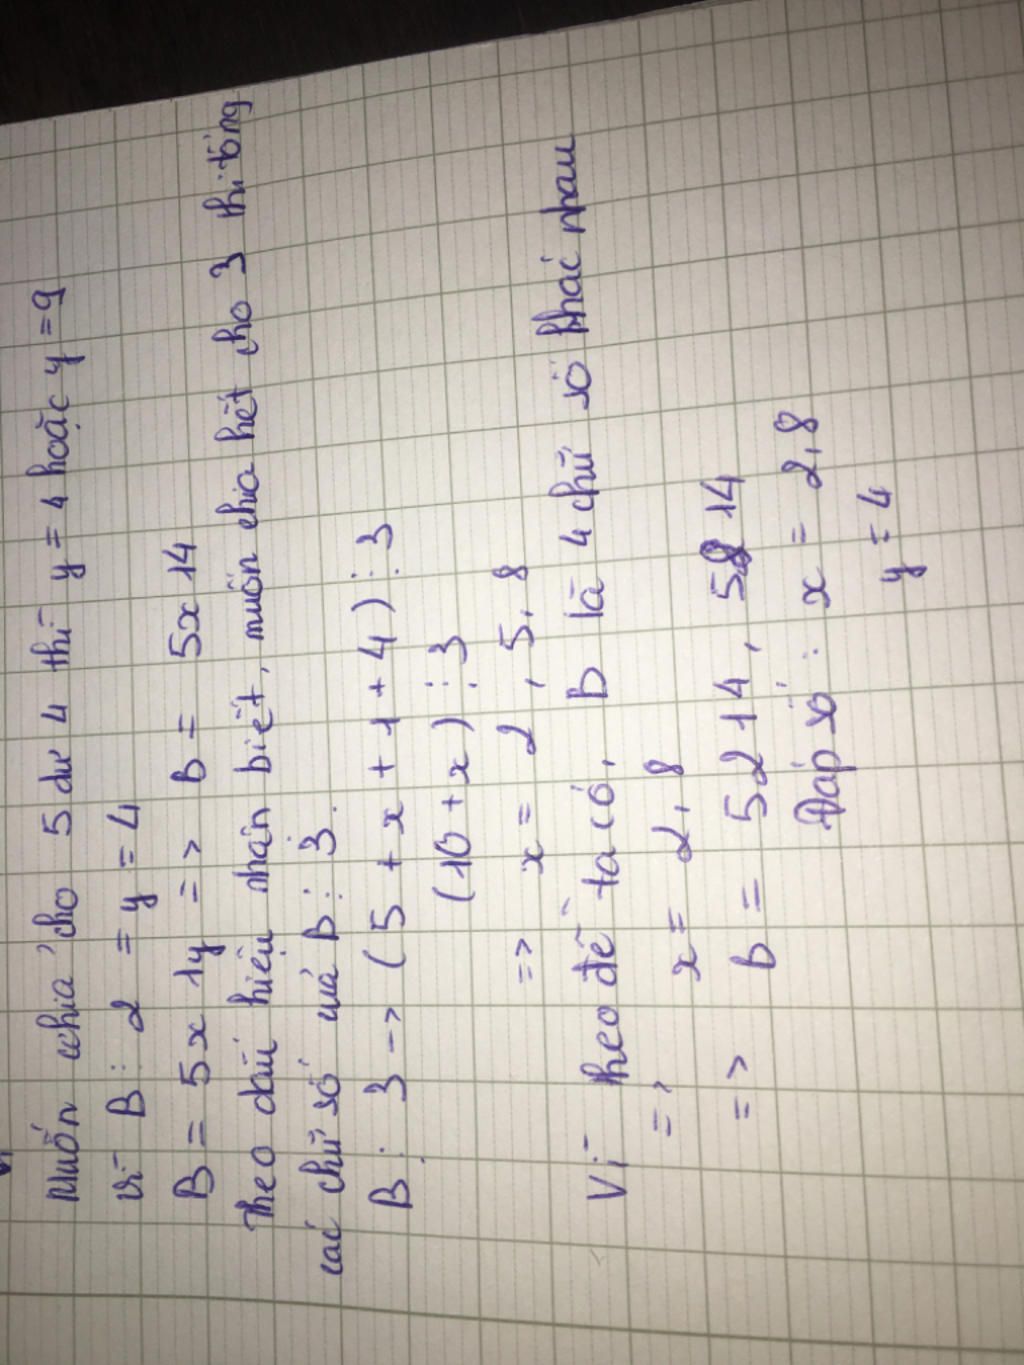 Muốn chia cho 5 dư 4 thì y = 4 hoặc y = 9
Vì B : 2 = y = 4
B = 5x1y => B = 5x14
Theo dấu hiệu nhận biết, muốn chia hết cho 3 thì tổng
các chữ số của B ⋮ 3.
B ⋮ 3 -> ( 5 + x + 1 + 4 ) ⋮ 3
(10 + x) ⋮ 3
=> x = 2, 5, 8
Vì theo đề ta có, B là 4 chữ số khác nhau
=> x = 2, 8
=> B = 5214, 5814
Đáp số : x = 2, 8
y = 4